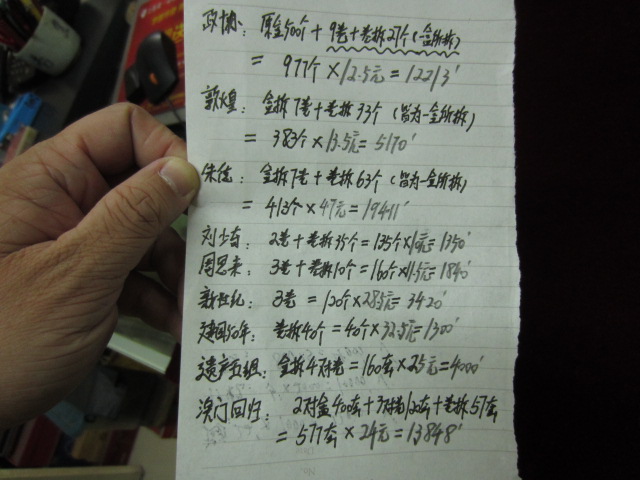 政协: 原盒500个+9卷+卷拆27个(一盒所拆)
= 977个×12.5元=12213'
敦煌: 盒拆7卷+卷拆33个(皆为一盒所拆)
= 383个×13.5元=5170'
朱德: 盒拆7卷+卷拆63个(皆为一盒所拆)
= 413个×47元=19411'
刘少奇: 2卷+卷拆35个=135个×10元=1350'
周恩来: 3卷+卷拆10个=160个×11.5元=1840'
新世纪: 3卷 =120个×28.5元=3420'
建国50年: 卷拆40个=40个×32.5元=1300'
遗产五组: 盒拆4对卷=160套×25元=4000'
澳门回归: 2对盒400套+3对卷120套+卷拆57套
=577套×24元=13848'